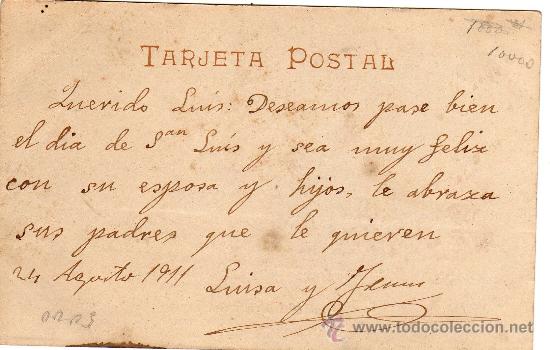 1000
10000
TARJETA POSTAL
Querido Luís: Deseamos pase bien
el dia de San Luís y sea muy feliz
con su esposa y hijos, le abraza
sus padres que le quieren
24 Agosto 1911 Luisa y
www.todocoleccion.net